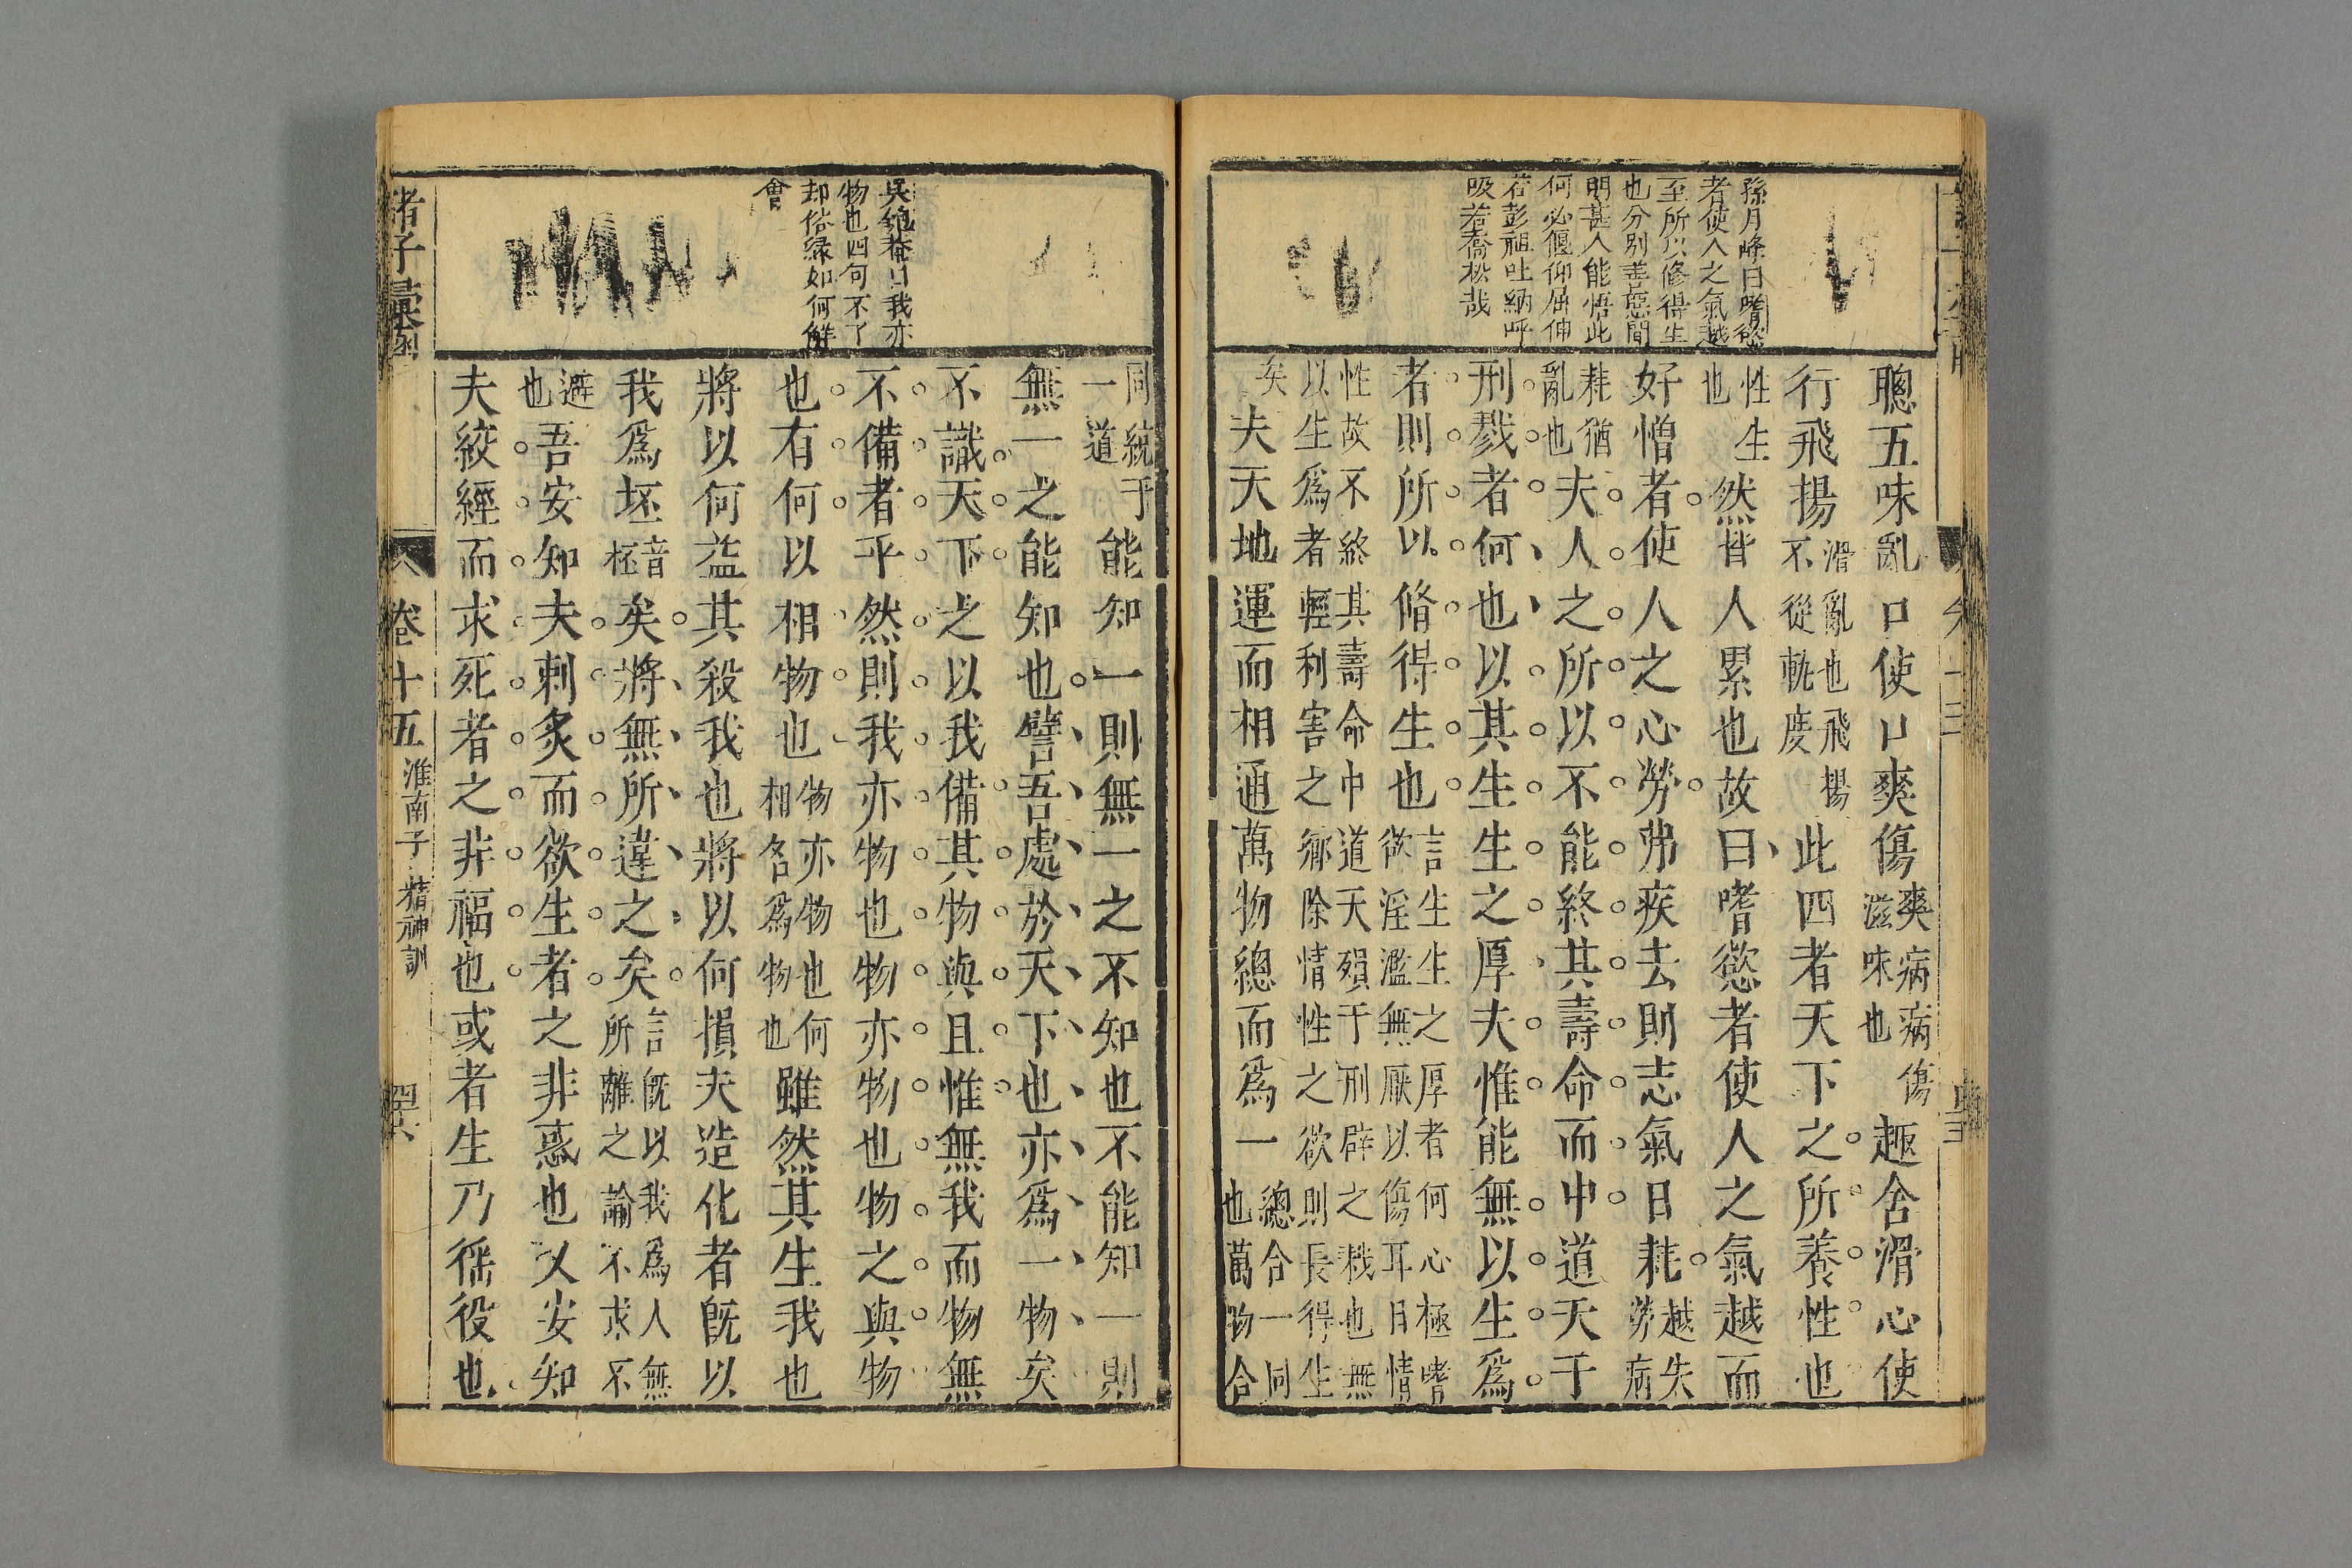 孫月峰曰嗜慾
者使人之氣越
至所以修得生
也分别善惡間
明甚人能悟此
何必偃仰屈伸
若彭祖吐納呼
吸若喬松哉
聰五味亂口使口爽傷爽病病傷滋味也趣舍滑心使
行飛揚滑亂也飛揚不從軌度此四者天下之所養性也
性生也然皆人累也故曰嗜慾者使人之氣越而
好憎者使人之心勞弗疾去則志氣日耗越失勞病
耗猶亂也夫人之所以不能終其壽命而中道夭于
刑戮者何也以其生生之厚夫惟能無以生爲
者則所以脩得生也言生生之厚者何心極嗜欲淫濫無厭以傷耳目情
性故不終其壽命中道夭殞于刑辟之戮也無以生爲者輕利害之鄉除情性之欲則長得生
矣夫天地運而相通萬物總而爲一總合一同也萬物合
吳匏菴曰我亦
物也四句不了
却俗縁如何觧
會
同統于一道能知一則無一之不知也不能知一則
無一之能知也譬吾處於天下也亦爲一物矣
不識天下之以我備其物與且惟無我而物無
不備者乎然則我亦物也物亦物也物之與物
也有何以相物也物亦物也何相名爲物也雖然其生我也
將以何益其殺我也將以何損夫造化者既以
我爲坯音柸矣將無所違之矣言既以我爲人無所離之論不求不
避也吾安知夫刺炙而欲生者之非惑也又安知
夫絞經而求死者之非福也或者生乃徭役也
諸子彙函
卷十五
淮南子
精神訓